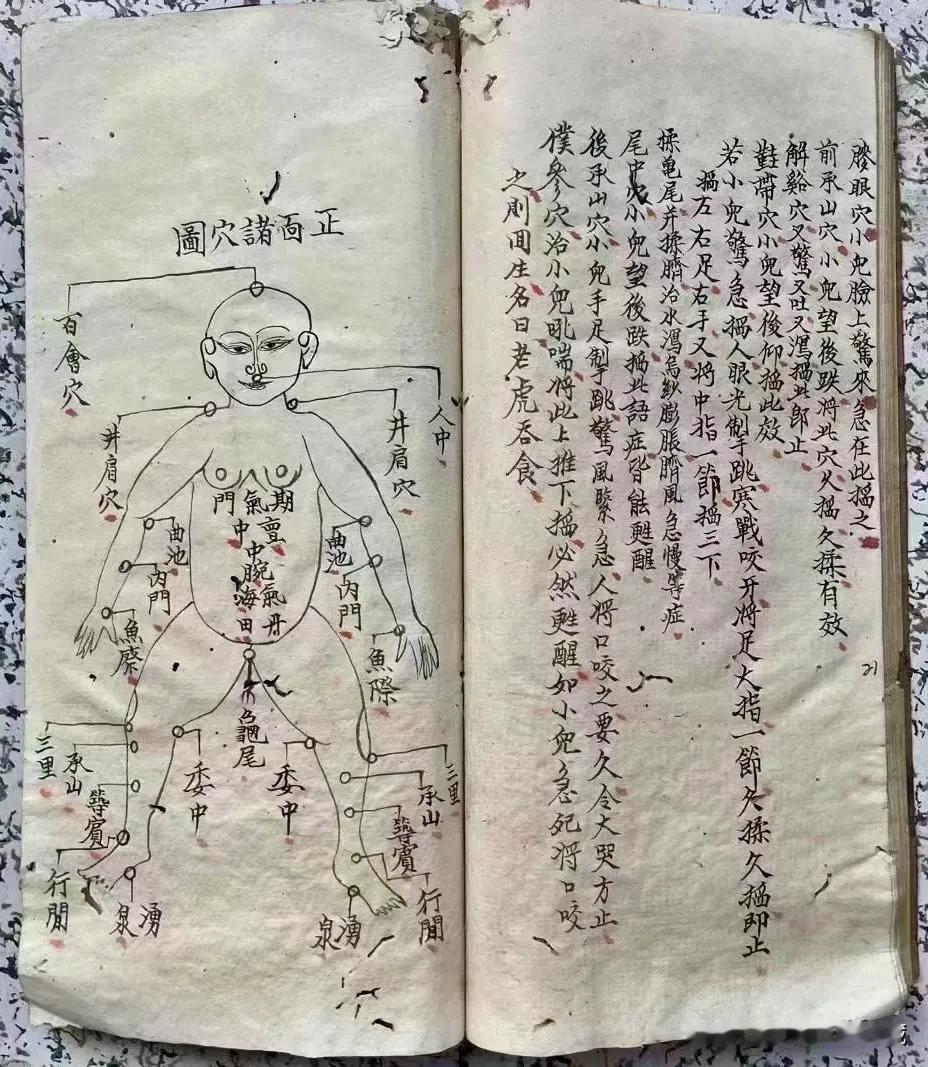 膝眼穴小兒臉上驚來急在此搯之
前承山穴小兒望後跌將此穴久搯久揉有效
解谿穴又驚又吐又瀉搯此即止
鞋帶穴小兒望後仰搯此效
若小兒驚急搯人眼光掣手跳寒戰咬牙將足大指一節久揉久搯即止
搯左右足右手又將中指一節搯三下
揉亀尾并揉臍治水瀉烏紗膨脹臍風急慢等症
尾中穴小兒望後跌搯此語症皆能甦醒
後承山穴小兒手足掣跳驚風緊急人將口咬之要久令大哭方止
僕參穴治小兒吼喘將此上推下搯必然甦醒如小兒急死將口咬
之則囬生名曰老虎吞食
21
正面諸穴圖
百會穴
人中
井肩穴
井肩穴
期
氣
門
亶
中
中脘
氣
海
丹
田
曲池
曲池
內門
內門
魚際
魚際
龜尾
三里
三里
承山
承山
委中
委中
等賓
等賓
行間
行間
湧泉
湧泉